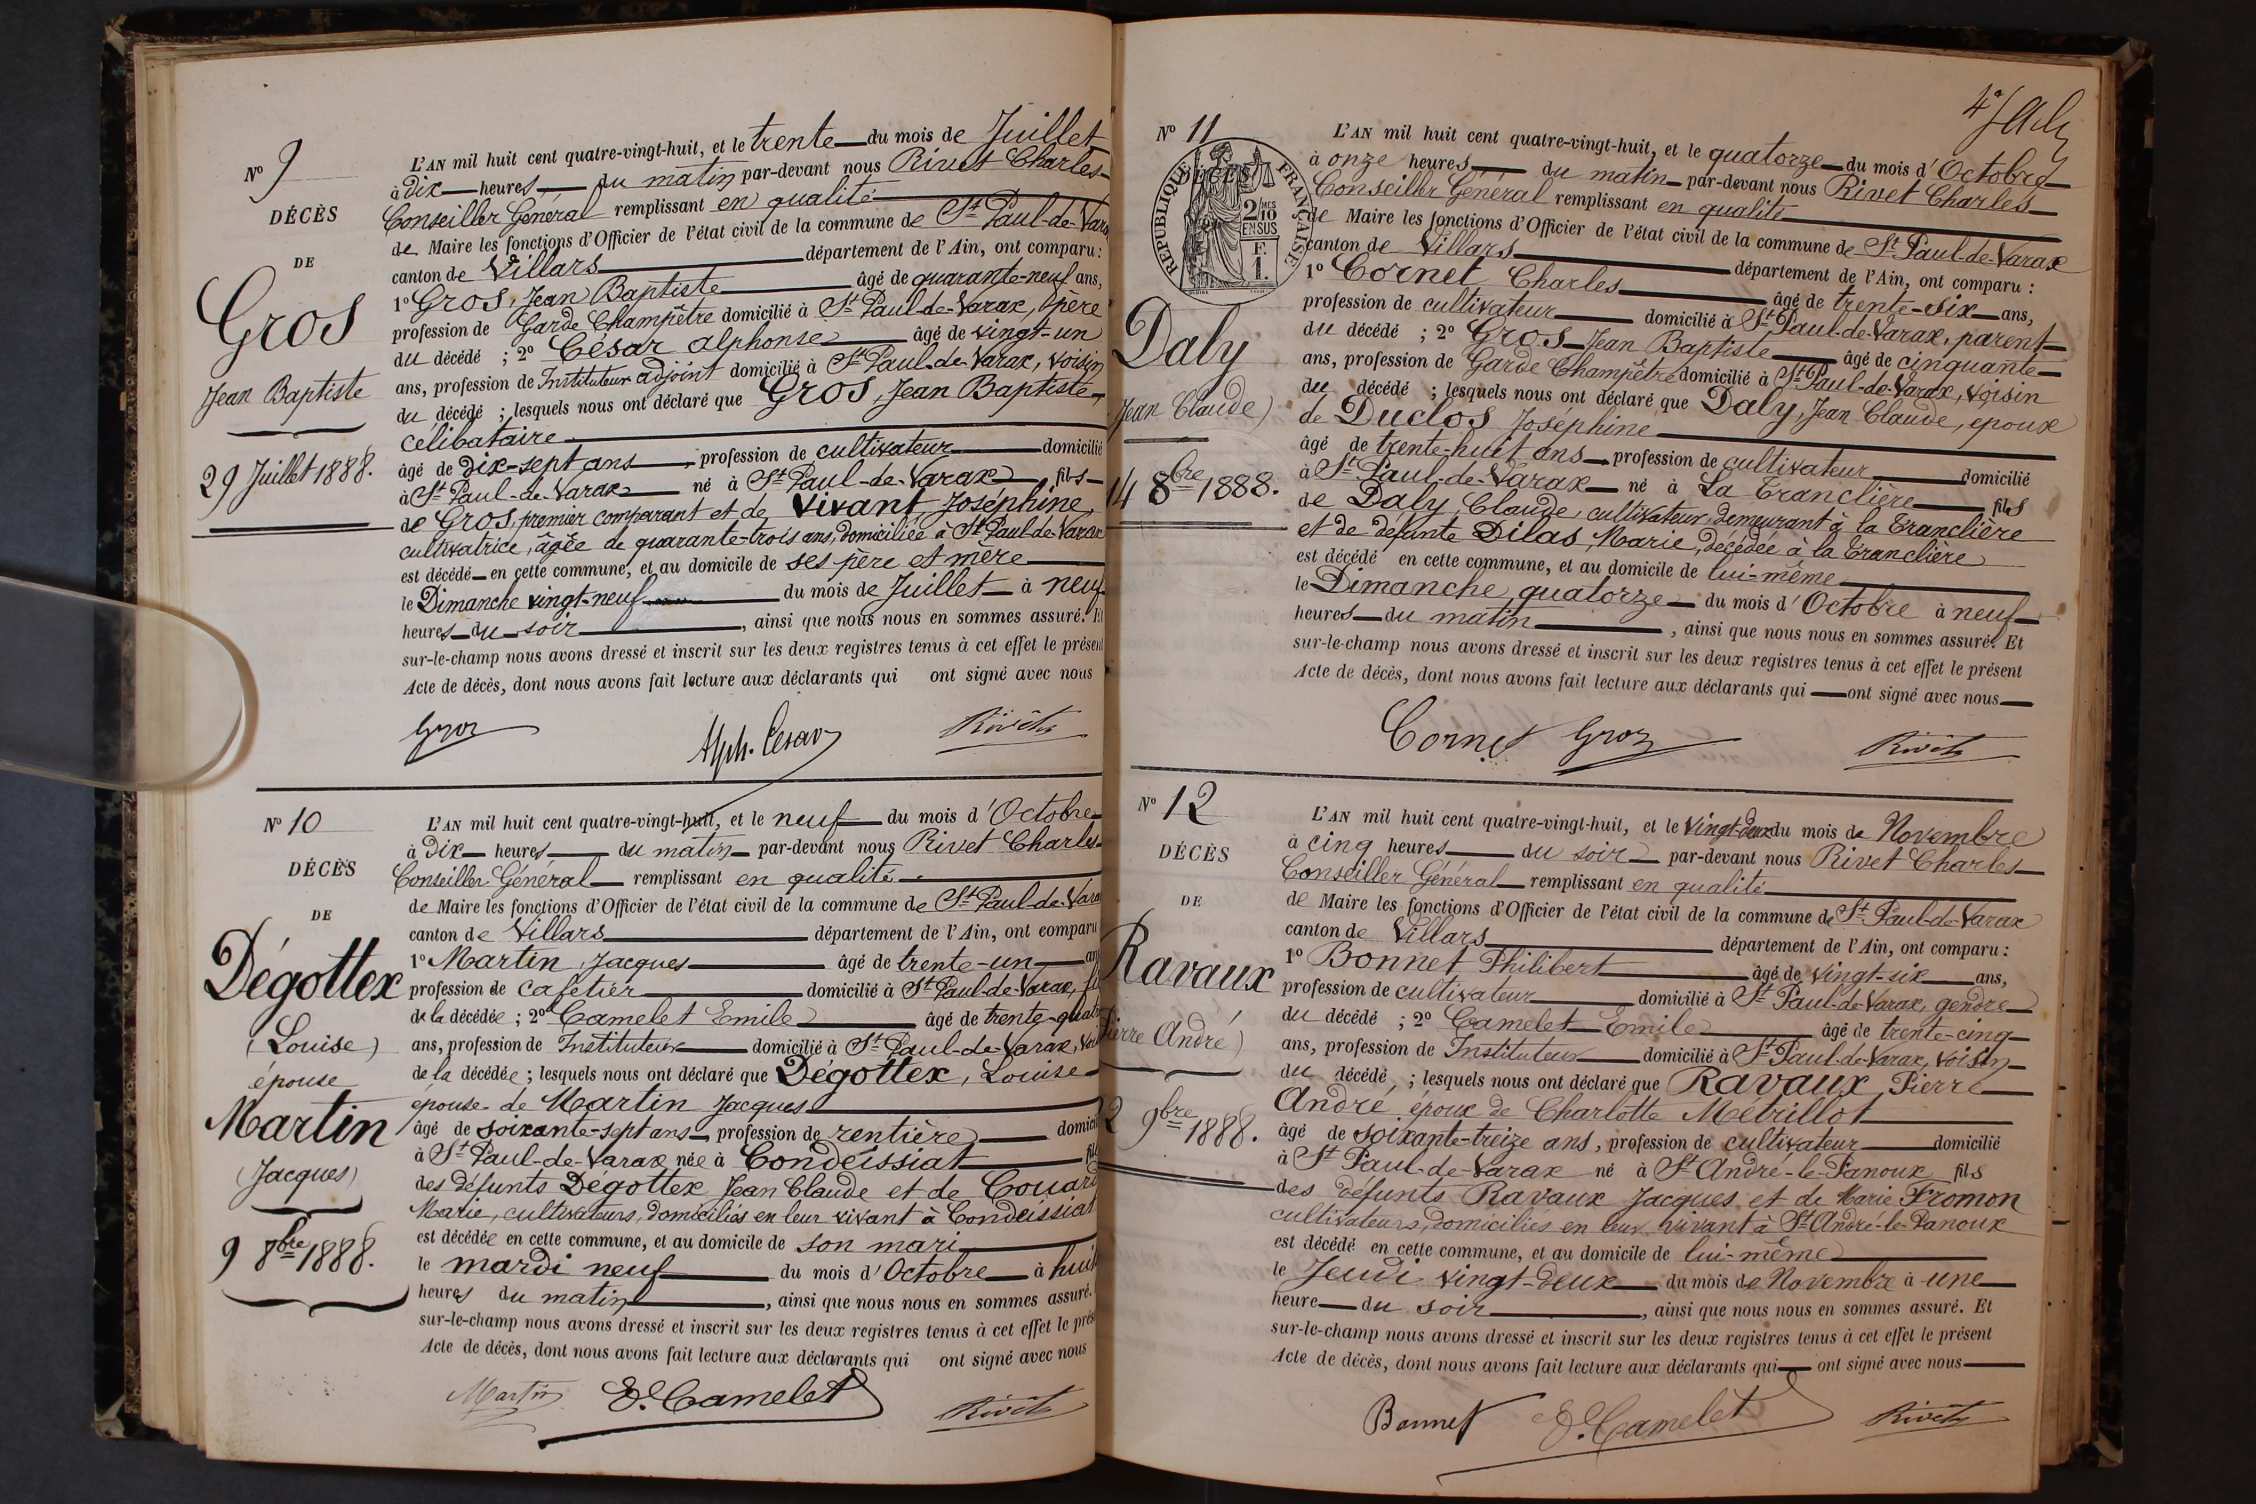 Nº 9
DÉCÈS
DE
Gros
Jean Baptiste
29 Juillet 1888.
L'AN mil huit cent quatre-vingt-huit, et le trente du mois de Juillet
à dix heures du matin par-devant nous Rivet Charles
Conseiller Général remplissant en qualité
de Maire les fonctions d'Officier de l'état civil de la commune de St Paul-de-Varax
canton de Villars département de l'Ain, ont comparu :
1º Gros, Jean Baptiste âgé de quarante-neuf ans,
profession de Garde Champêtre domicilié à St Paul-de-Varax, père
du décédé ; 2º César alphonse âgé de vingt-un
ans, profession de Instituteur adjoint domicilié à St Paul-de-Varax, voisin
du décédé ; lesquels nous ont déclaré que Gros, Jean Baptiste,
célibataire
âgé de dix-sept ans, profession de cultivateur domicilié
à St Paul-de-Varax né à St Paul-de-Varax fils
de Gros, premier comparant et de Vivant, Joséphine,
cultivatrice, âgée de quarante-trois ans, domiciliée à St Paul-de-Varax
est décédé en cette commune, et au domicile de ses père et mère
le Dimanche vingt-neuf du mois de Juillet à neuf
heures du soir, ainsi que nous nous en sommes assuré. Et
sur-le-champ nous avons dressé et inscrit sur les deux registres tenus à cet effet le présent
Acte de décès, dont nous avons fait lecture aux déclarants qui ont signé avec nous
Gros Alph. Cesar Rivet
Nº 10
DÉCÈS
DE
Dégottex
(Louise)
épouse
Martin
(Jacques)
9 8bre 1888.
L'AN mil huit cent quatre-vingt-huit, et le neuf du mois d'Octobre
à dix heures du matin par-devant nous Rivet Charles
Conseiller Général remplissant en qualité
de Maire les fonctions d'Officier de l'état civil de la commune de St Paul-de-Vara
canton de Villars département de l'Ain, ont comparu
1º Martin Jacques âgé de trente-un an
profession de cafetier domicilié à St Paul-de-Varax, fi
de la décédée ; 2º Camelet Emile âgé de trente-quatre
ans, profession de Instituteur domicilié à St Paul-de-Varax, voi
de la décédée ; lesquels nous ont déclaré que Dégottex, Louise
épouse de Martin Jacques
âgé de soixante-sept ans, profession de rentière domicil
à St Paul-de-Varax née à Condeissiat fil
des défunts Dégottex Jean Claude et de Couard
Marie, cultivateurs, domiciliés en leur vivant à Condeissiat
est décédée en cette commune, et au domicile de son mari
le mardi neuf du mois d'Octobre à huit
heures du matin, ainsi que nous nous en sommes assuré.
sur-le-champ nous avons dressé et inscrit sur les deux registres tenus à cet effet le prése
Acte de décès, dont nous avons fait lecture aux déclarants qui ont signé avec nous
Martin E. Camelet Rivet
4e
Nº 11
RÉPUBLIQUE FRANÇAISE
DÉCÈS
2 MES
10
EN SUS
F.
1.
Daly
Jean Claude)
14 8bre 1888.
L'AN mil huit cent quatre-vingt-huit, et le quatorze du mois d'Octobre
à onze heures du matin par-devant nous Rivet Charles
Conseiller Général remplissant en qualité
de Maire les fonctions d'Officier de l'état civil de la commune de St Paul-de-Varax
canton de Villars département de l'Ain, ont comparu :
1º Cornet Charles âgé de trente-six ans,
profession de cultivateur domicilié à St Paul-de-Varax, parent
du décédé ; 2º Gros Jean Baptiste âgé de cinquante
ans, profession de Garde Champêtre domicilié à St Paul-de-Varax, voisin
du décédé ; lesquels nous ont déclaré que Daly, Jean Claude, epoux
de Duclos Joséphine
âgé de trente-huit ans, profession de cultivateur domicilié
à St Paul-de-Varax né à La Tranclière fils
de Daly, Claude, cultivateur, demeurant à la Tranclière
et de défunte Dilas, Marie, décédée à la Tranclière
est décédé en cette commune, et au domicile de lui-même
le Dimanche quatorze du mois d'Octobre à neuf
heures du matin, ainsi que nous nous en sommes assuré. Et
sur-le-champ nous avons dressé et inscrit sur les deux registres tenus à cet effet le présent
Acte de décès, dont nous avons fait lecture aux déclarants qui ont signé avec nous
Cornet Gros Rivet
Nº 12
DÉCÈS
DE
Ravaux
Pierre André)
22 9bre 1888.
L'AN mil huit cent quatre-vingt-huit, et le vingt-deux du mois de Novembre
à cinq heures du soir par-devant nous Rivet Charles
Conseiller Général remplissant en qualité
de Maire les fonctions d'Officier de l'état civil de la commune de St Paul-de-Varax
canton de Villars département de l'Ain, ont comparu :
1º Bonnet Philibert âgé de vingt-six ans,
profession de cultivateur domicilié à St Paul-de-Varax, gendre
du décédé ; 2º Camelet Emile âgé de trente-cinq
ans, profession de Instituteur domicilié à St Paul-de-Varax, voisin
du décédé ; lesquels nous ont déclaré que Ravaux Pierre
André époux de Charlotte Mébrillot
âgé de soixante-treize ans, profession de cultivateur domicilié
à St Paul-de-Varax né à St André-le-Panoux fils
des défunts Ravaux Jacques et de Marie Fromon
cultivateurs, domiciliés en leur vivant à St André-le-Panoux
est décédé en cette commune, et au domicile de lui-même
le Jeudi vingt-deux du mois de Novembre à une
heure du soir, ainsi que nous nous en sommes assuré. Et
sur-le-champ nous avons dressé et inscrit sur les deux registres tenus à cet effet le présent
Acte de décès, dont nous avons fait lecture aux déclarants qui ont signé avec nous
Bonnet E. Camelet Rivet